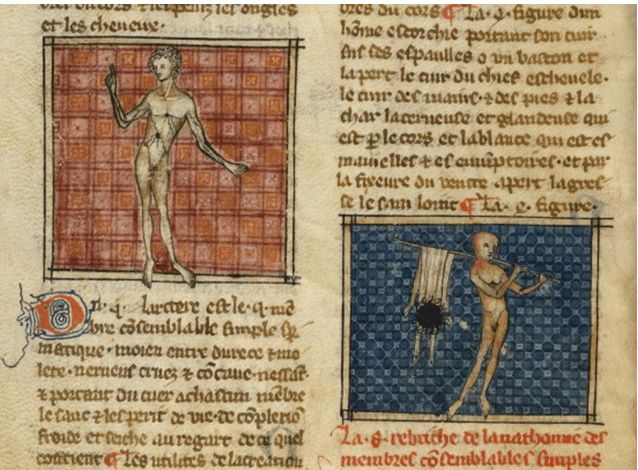 les ongles
et les cheueux.
lartere est le .q. mē
bre cōsemblable simple sp̄
matique. moien entre durece & mo
lete. nerueus cruez & cōcaue. nessāt
& portant du cuer achascun mēbre
le sanc & lesperit de vie. de cōplexiō
froide et seiche au regart de ce quel
contient ¶ Les utilites de lacreation
bres du cors ¶ La .q. figure dun
home escorchie portant son cuir
sus ses espaulles o un baston et
lapert le cuir du chief escheuele.
le cuir des mains. & des pies & la
char lacerneuse et glandeuse qui
est p̱ le cors et lablance qui est es
mamelles & es emuptoires. et par
la fixeure du ventre. apert lagres
se le sain loint ¶ La .e. figure.
La .8. rebriche de lanathomie des
membres cōsemblables simples